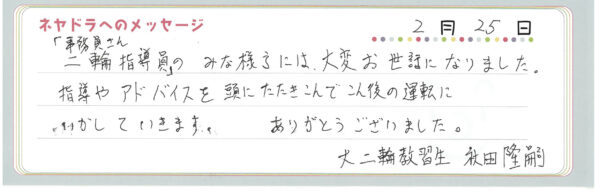 ネヤドラへのメッセージ 2月25日
「事務員さん
二輪指導員」の みな様方には、大変お世話になりました。
指導やアドバイスを頭にたたきこんでこん後の運転に
かしていきます。 ありがとうございました。
大二輪教習生 秋田隆嗣